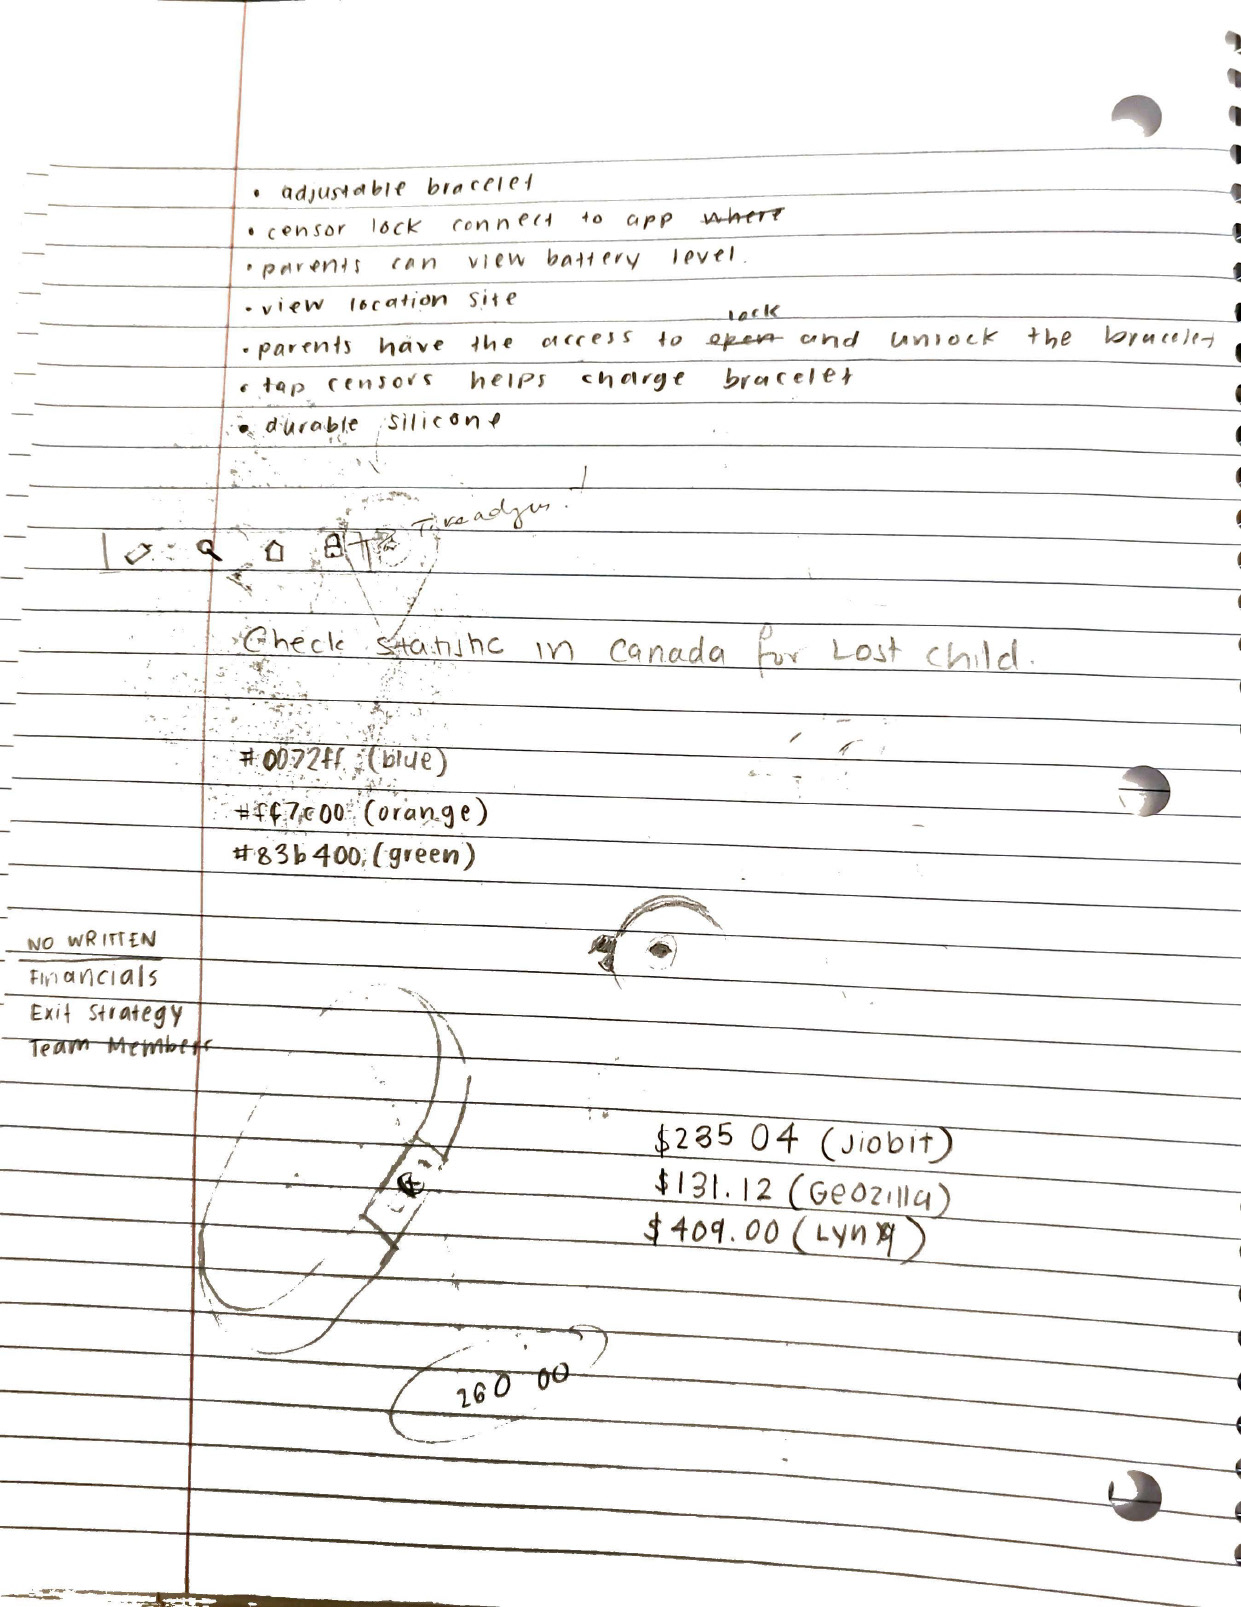 • adjustable bracelet
• censor lock connect to app where
• parents can view battery level.
• view location site
lock
• parents have the access to open and unlock the bracelet
• tap censors helps charge bracelet
• durable silicone
Check in Canada for Lost child.
#0072ff (blue)
#ff7c00 (orange)
#83b400 (green)
NO WRITTEN
Financials
Exit Strategy
Team Members
$235 04 (Jiobit)
$131.12 (Geozilla)
$409.00 (Lynq)
260 00